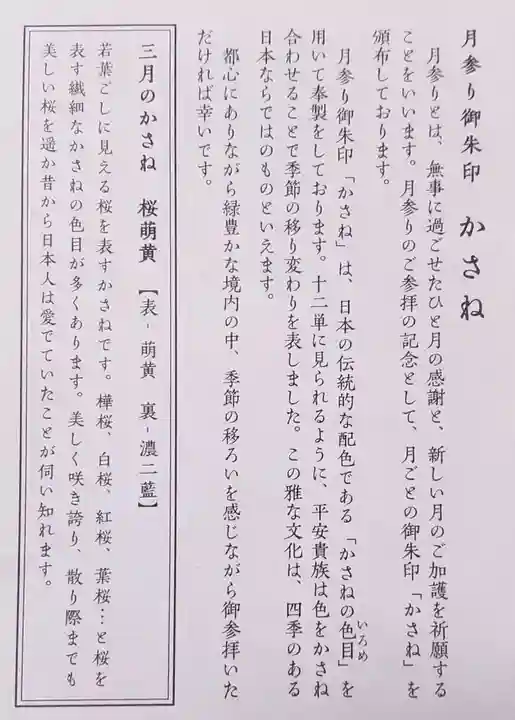 月参り御朱印　かさね
月参りとは、無事に過ごせたひと月の感謝と、新しい月のご加護を祈願する
ことをいいます。月参りのご参拝の記念として、月ごとの御朱印「かさね」を
頒布しております。
月参り御朱印「かさね」は、日本の伝統的な配色である「かさねの色目」を
いろめ
用いて奉製をしております。十二単に見られるように、平安貴族は色をかさね
合わせることで季節の移り変わりを表しました。この雅な文化は、四季のある
日本ならではのものといえます。
都心にありながら緑豊かな境内の中、季節の移ろいを感じながら御参拝いた
だければ幸いです。
三月のかさね　桜萌黄　【表-萌黄　裏-濃二藍】
若葉ごしに見える桜を表すかさねです。樺桜、白桜、紅桜、葉桜…と桜を
表す繊細なかさねの色目が多くあります。美しく咲き誇り、散り際までも
美しい桜を遥か昔から日本人は愛でていたことが伺い知れます。